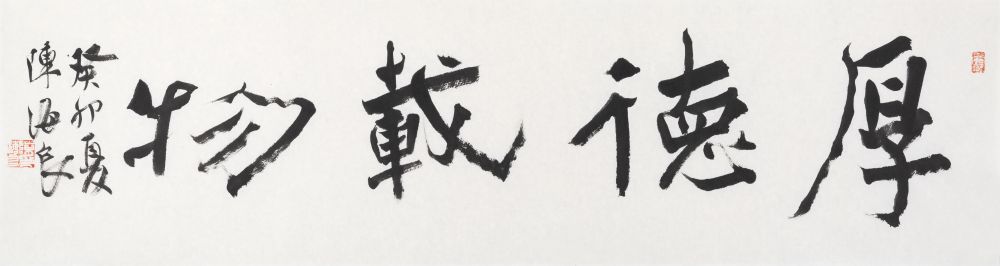 厚德載物
癸卯夏
陳海良